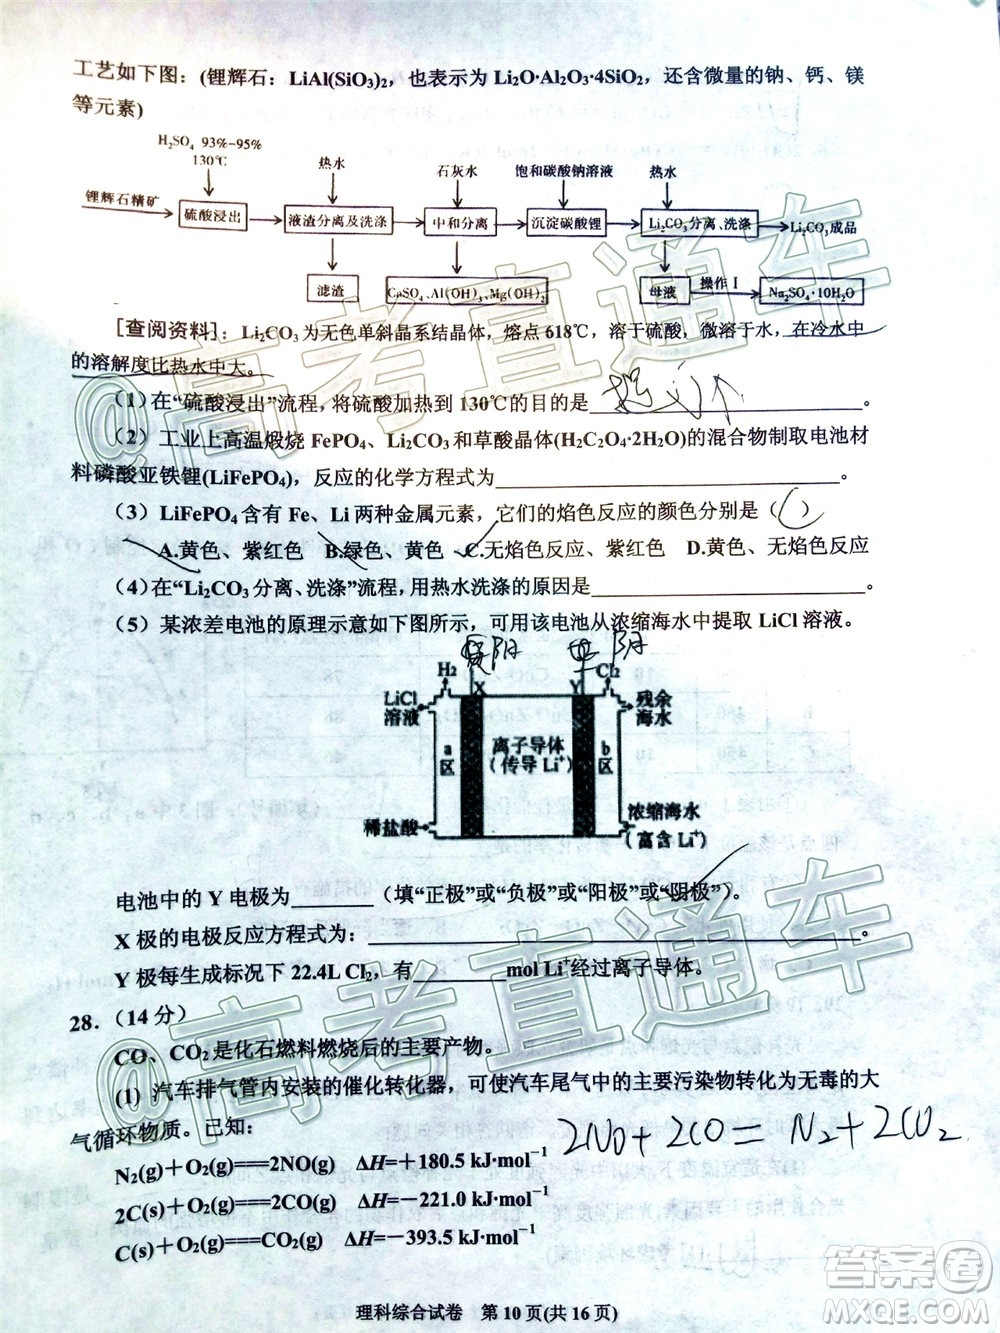 工艺如下图：(锂辉石：LiAl(SiO₃)₂，也表示为 Li₂O·Al₂O₃·4SiO₂，还含微量的钠、钙、镁
等元素)
H₂SO₄ 93%-95%
130℃
热水
石灰水
饱和碳酸钠溶液
热水
锂辉石精矿
硫酸浸出
液渣分离及洗涤
中和分离
沉淀碳酸锂
Li₂CO₃分离、洗涤
Li₂CO₃成品
滤渣
CaSO₄、Al(OH)₃、Mg(OH)₂
母液
操作Ⅰ
Na₂SO₄·10H₂O
[查阅资料]：Li₂CO₃为无色单斜晶系结晶体，熔点 618℃，溶于硫酸，微溶于水，在冷水中
的溶解度比热水中大。
(1) 在“硫酸浸出”流程，将硫酸加热到 130℃的目的是 。
(2) 工业上高温煅烧 FePO₄、Li₂CO₃和草酸晶体(H₂C₂O₄·2H₂O)的混合物制取电池材
料磷酸亚铁锂(LiFePO₄)，反应的化学方程式为 .
(3) LiFePO₄含有 Fe、Li 两种金属元素，它们的焰色反应的颜色分别是（ ）
A.黄色、紫红色 B.绿色、黄色 C.无焰色反应、紫红色 D.黄色、无焰色反应
(4) 在“Li₂CO₃分离、洗涤”流程，用热水洗涤的原因是 。
(5) 某浓差电池的原理示意如下图所示，可用该电池从浓缩海水中提取 LiCl 溶液。
阴
H₂
X
Y
Cl₂
LiCl
溶液
残余
海水
a
区
离子导体
（传导 Li⁺）
b
区
稀盐酸
浓缩海水
（富含 Li⁺）
电池中的 Y 电极为 （填“正极”或“负极”或“阳极”或“阴极”）。
X 极的电极反应方程式为： 。
Y 极每生成标况下 22.4L Cl₂，有 mol Li⁺经过离子导体。
28.（14 分）
CO、CO₂是化石燃料燃烧后的主要产物。
(1) 汽车排气管内安装的催化转化器，可使汽车尾气中的主要污染物转化为无毒的大
气循环物质。已知：
2NO+2CO=N₂+2CO₂
N₂(g)＋O₂(g)═══2NO(g) ΔH=＋180.5 kJ·mol⁻¹
2C(s)＋O₂(g)═══2CO(g) ΔH=－221.0 kJ·mol⁻¹
C(s)＋O₂(g)═══CO₂(g) ΔH=－393.5 kJ·mol⁻¹
理科综合试卷 第 10 页(共 16 页)
@高考直通车
@高考直通车
答案圈
MXQE.COM